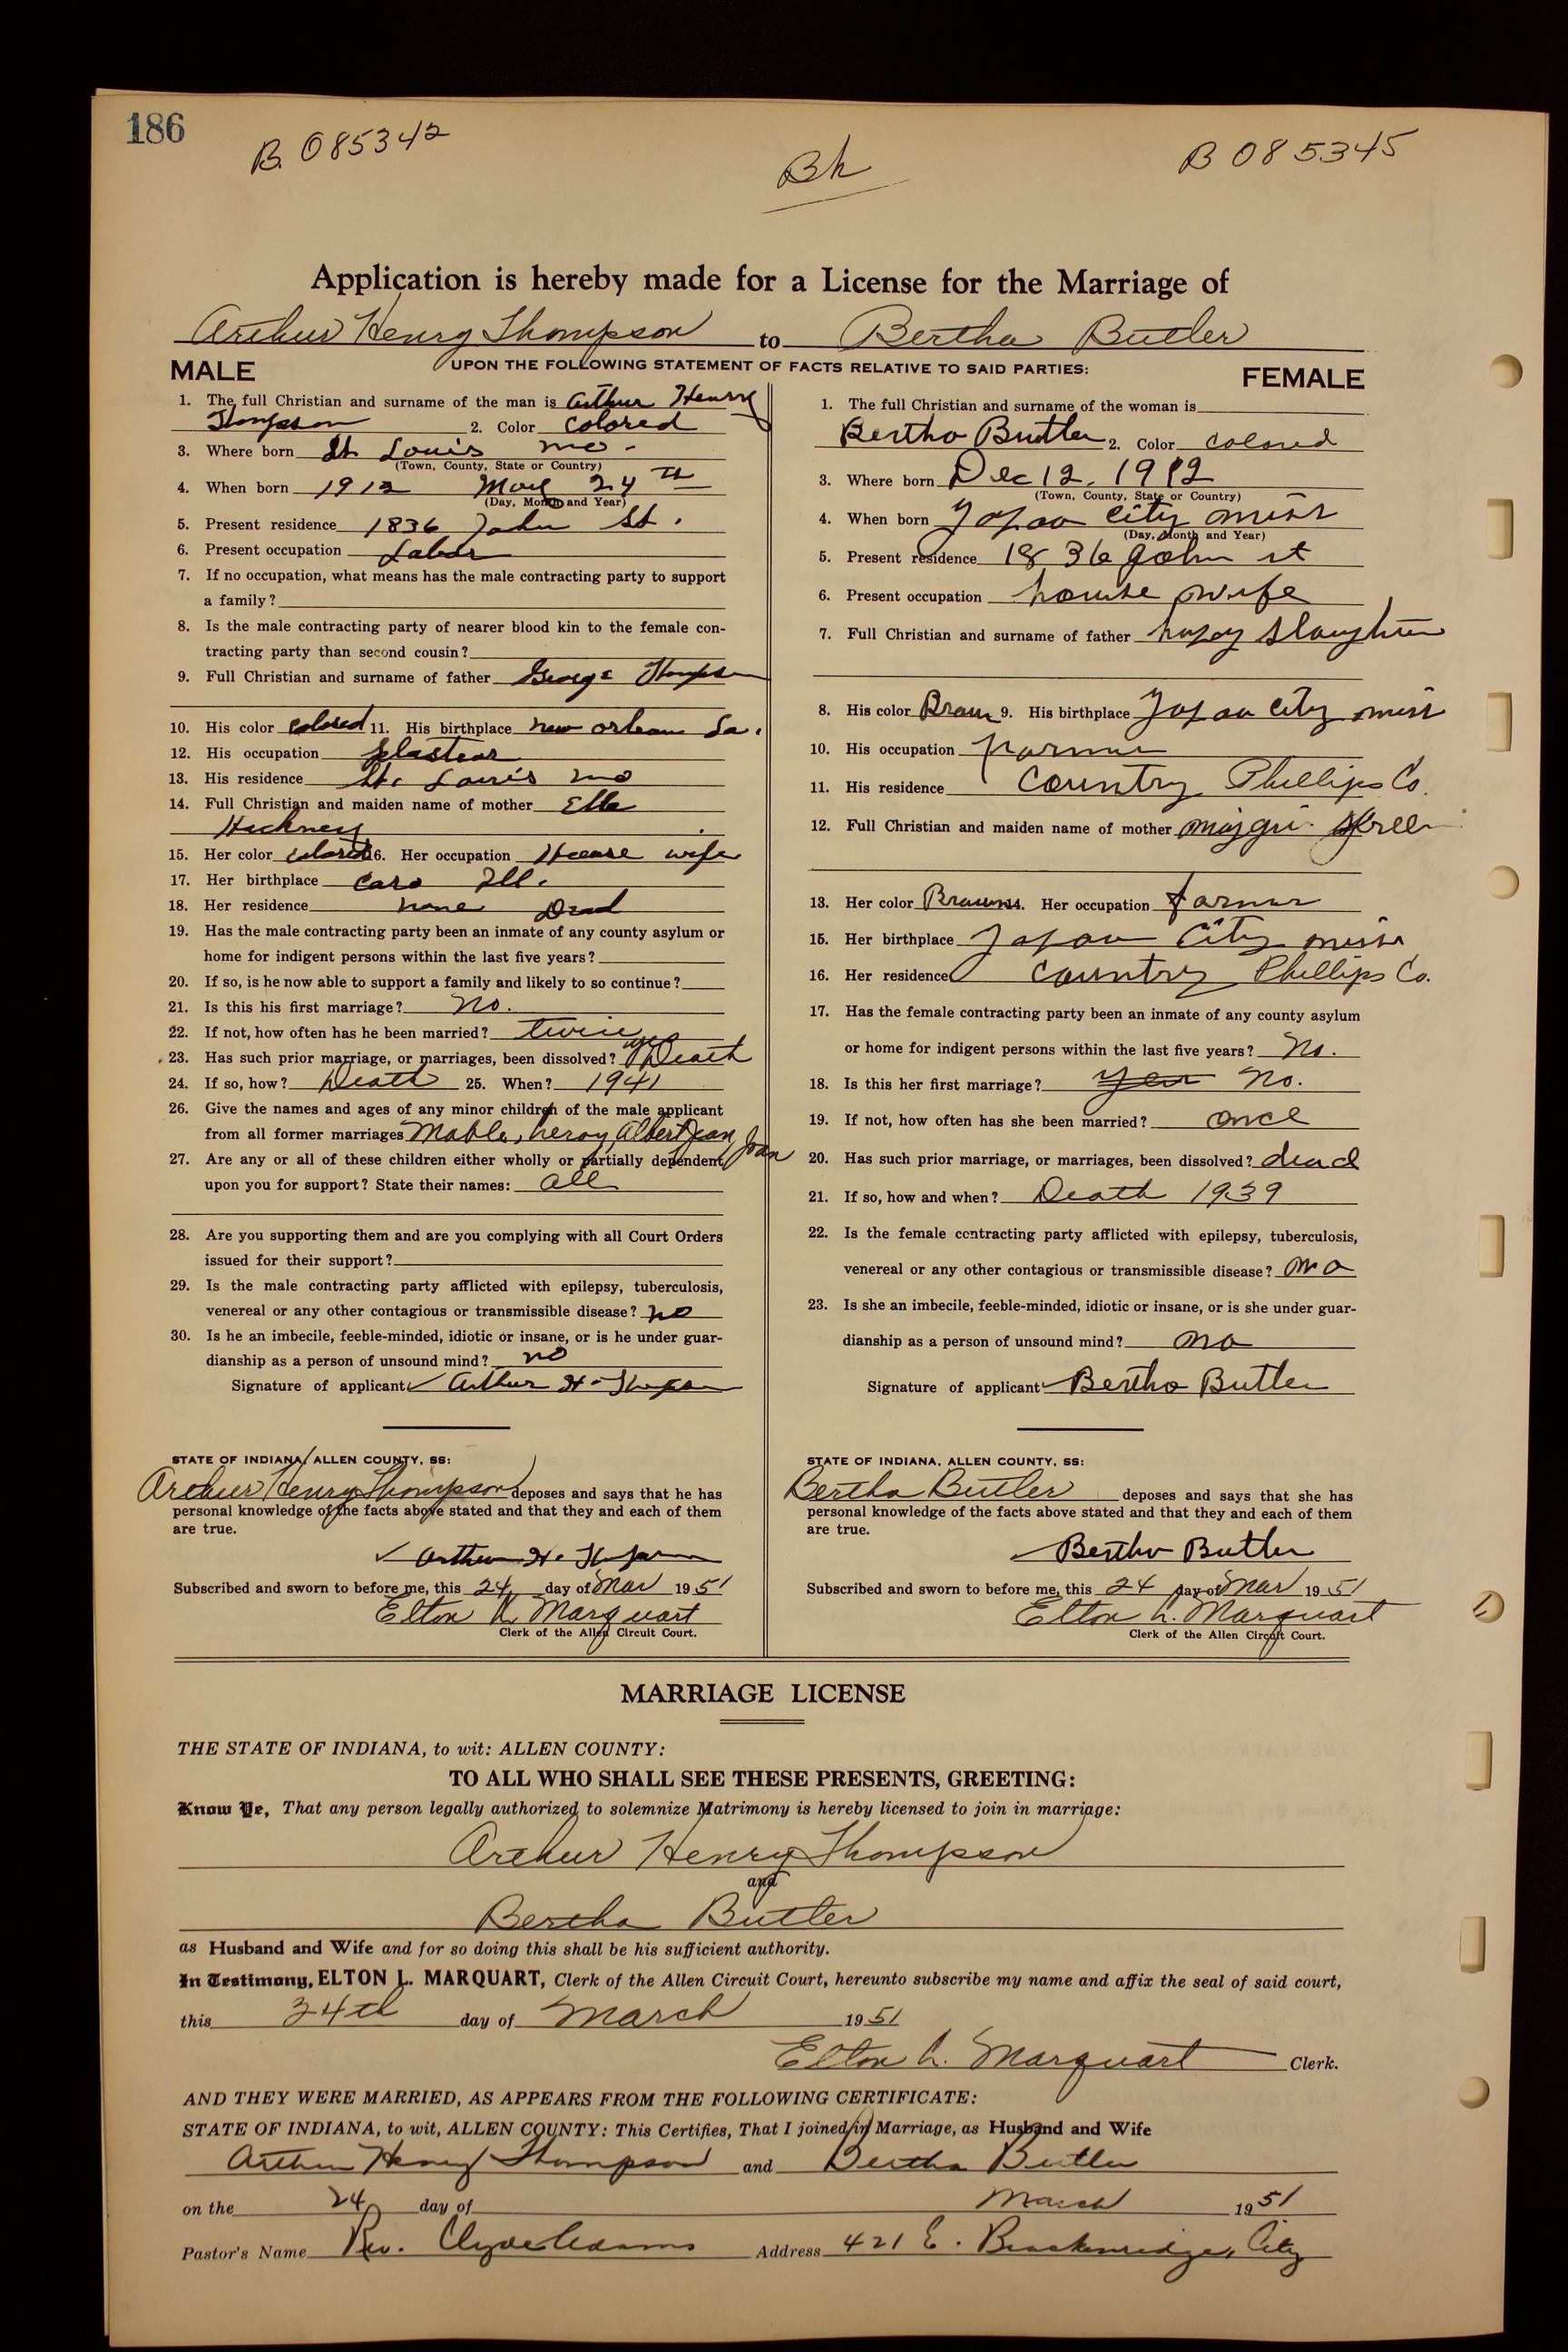 186
B 085342
Bh
B 085345
Application is hereby made for a License for the Marriage of
Arthur Henry Thompson to Bertha Butler
UPON THE FOLLOWING STATEMENT OF FACTS RELATIVE TO SAID PARTIES:
MALE
1. The full Christian and surname of the man is Arthur Henry
Thompson 2. Color Colored
3. Where born St Louis Mo.
(Town, County, State or Country)
4. When born 1912 May 24th
(Day, Month and Year)
5. Present residence 1836 John St.
6. Present occupation Labor
7. If no occupation, what means has the male contracting party to support
a family?
8. Is the male contracting party of nearer blood kin to the female con-
tracting party than second cousin?
9. Full Christian and surname of father George Thompson
10. His color Colored 11. His birthplace New Orleans La.
12. His occupation plastear
13. His residence St. Louis Mo
14. Full Christian and maiden name of mother Ella
Hackney
15. Her color colored 16. Her occupation House wife
17. Her birthplace Caro Ill.
18. Her residence none Dead
19. Has the male contracting party been an inmate of any county asylum or
home for indigent persons within the last five years?
20. If so, is he now able to support a family and likely to so continue?
21. Is this his first marriage? No.
22. If not, how often has he been married? twice
23. Has such prior marriage, or marriages, been dissolved? yes Death
24. If so, how? Death 25. When? 1941
26. Give the names and ages of any minor children of the male applicant
from all former marriages Mable, Leroy, Albert Jean, Joan
27. Are any or all of these children either wholly or partially dependent
upon you for support? State their names: all
28. Are you supporting them and are you complying with all Court Orders
issued for their support?
29. Is the male contracting party afflicted with epilepsy, tuberculosis,
venereal or any other contagious or transmissible disease? no
30. Is he an imbecile, feeble-minded, idiotic or insane, or is he under guar-
dianship as a person of unsound mind? no
Signature of applicant Arthur H. Thompson
STATE OF INDIANA, ALLEN COUNTY, SS:
Arthur Henry Thompson deposes and says that he has
personal knowledge of the facts above stated and that they and each of them
are true.
Arthur H. Thompson
Subscribed and sworn to before me, this 24 day of Mar 1951
Elton L. Marquart
Clerk of the Allen Circuit Court.
FEMALE
1. The full Christian and surname of the woman is
Bertha Butler 2. Color colored
3. Where born Dec 12, 1912
(Town, County, State or Country)
4. When born Yazoo City miss
(Day, Month and Year)
5. Present residence 1836 John st
6. Present occupation house wife
7. Full Christian and surname of father Slaughter
8. His color Brown 9. His birthplace Yazoo City miss
10. His occupation farmer
11. His residence Country Phillips Co.
12. Full Christian and maiden name of mother
13. Her color Brown 14. Her occupation farmer
15. Her birthplace Yazoo City miss
16. Her residence Country Phillips Co.
17. Has the female contracting party been an inmate of any county asylum
or home for indigent persons within the last five years? No.
18. Is this her first marriage? yes No.
19. If not, how often has she been married? once
20. Has such prior marriage, or marriages, been dissolved? dead
21. If so, how and when? Death 1939
22. Is the female contracting party afflicted with epilepsy, tuberculosis,
venereal or any other contagious or transmissible disease? no
23. Is she an imbecile, feeble-minded, idiotic or insane, or is she under guar-
dianship as a person of unsound mind? no
Signature of applicant Bertha Butler
STATE OF INDIANA, ALLEN COUNTY, SS:
Bertha Butler deposes and says that she has
personal knowledge of the facts above stated and that they and each of them
are true.
Bertha Butler
Subscribed and sworn to before me, this 24 day of Mar 1951
Elton L. Marquart
Clerk of the Allen Circuit Court.
MARRIAGE LICENSE
THE STATE OF INDIANA, to wit: ALLEN COUNTY:
TO ALL WHO SHALL SEE THESE PRESENTS, GREETING:
Know Ye, That any person legally authorized to solemnize Matrimony is hereby licensed to join in marriage:
Arthur Henry Thompson
and
Bertha Butler
as Husband and Wife and for so doing this shall be his sufficient authority.
In Testimony, ELTON L. MARQUART, Clerk of the Allen Circuit Court, hereunto subscribe my name and affix the seal of said court,
this 24th day of March 1951
Elton L. Marquart Clerk.
AND THEY WERE MARRIED, AS APPEARS FROM THE FOLLOWING CERTIFICATE:
STATE OF INDIANA, to wit, ALLEN COUNTY: This Certifies, That I joined in Marriage, as Husband and Wife
Arthur Henry Thompson and Bertha Butler
on the 24 day of March 1951
Pastor's Name Rev. Clyde Adams Address 421 E. Brackenridge, City